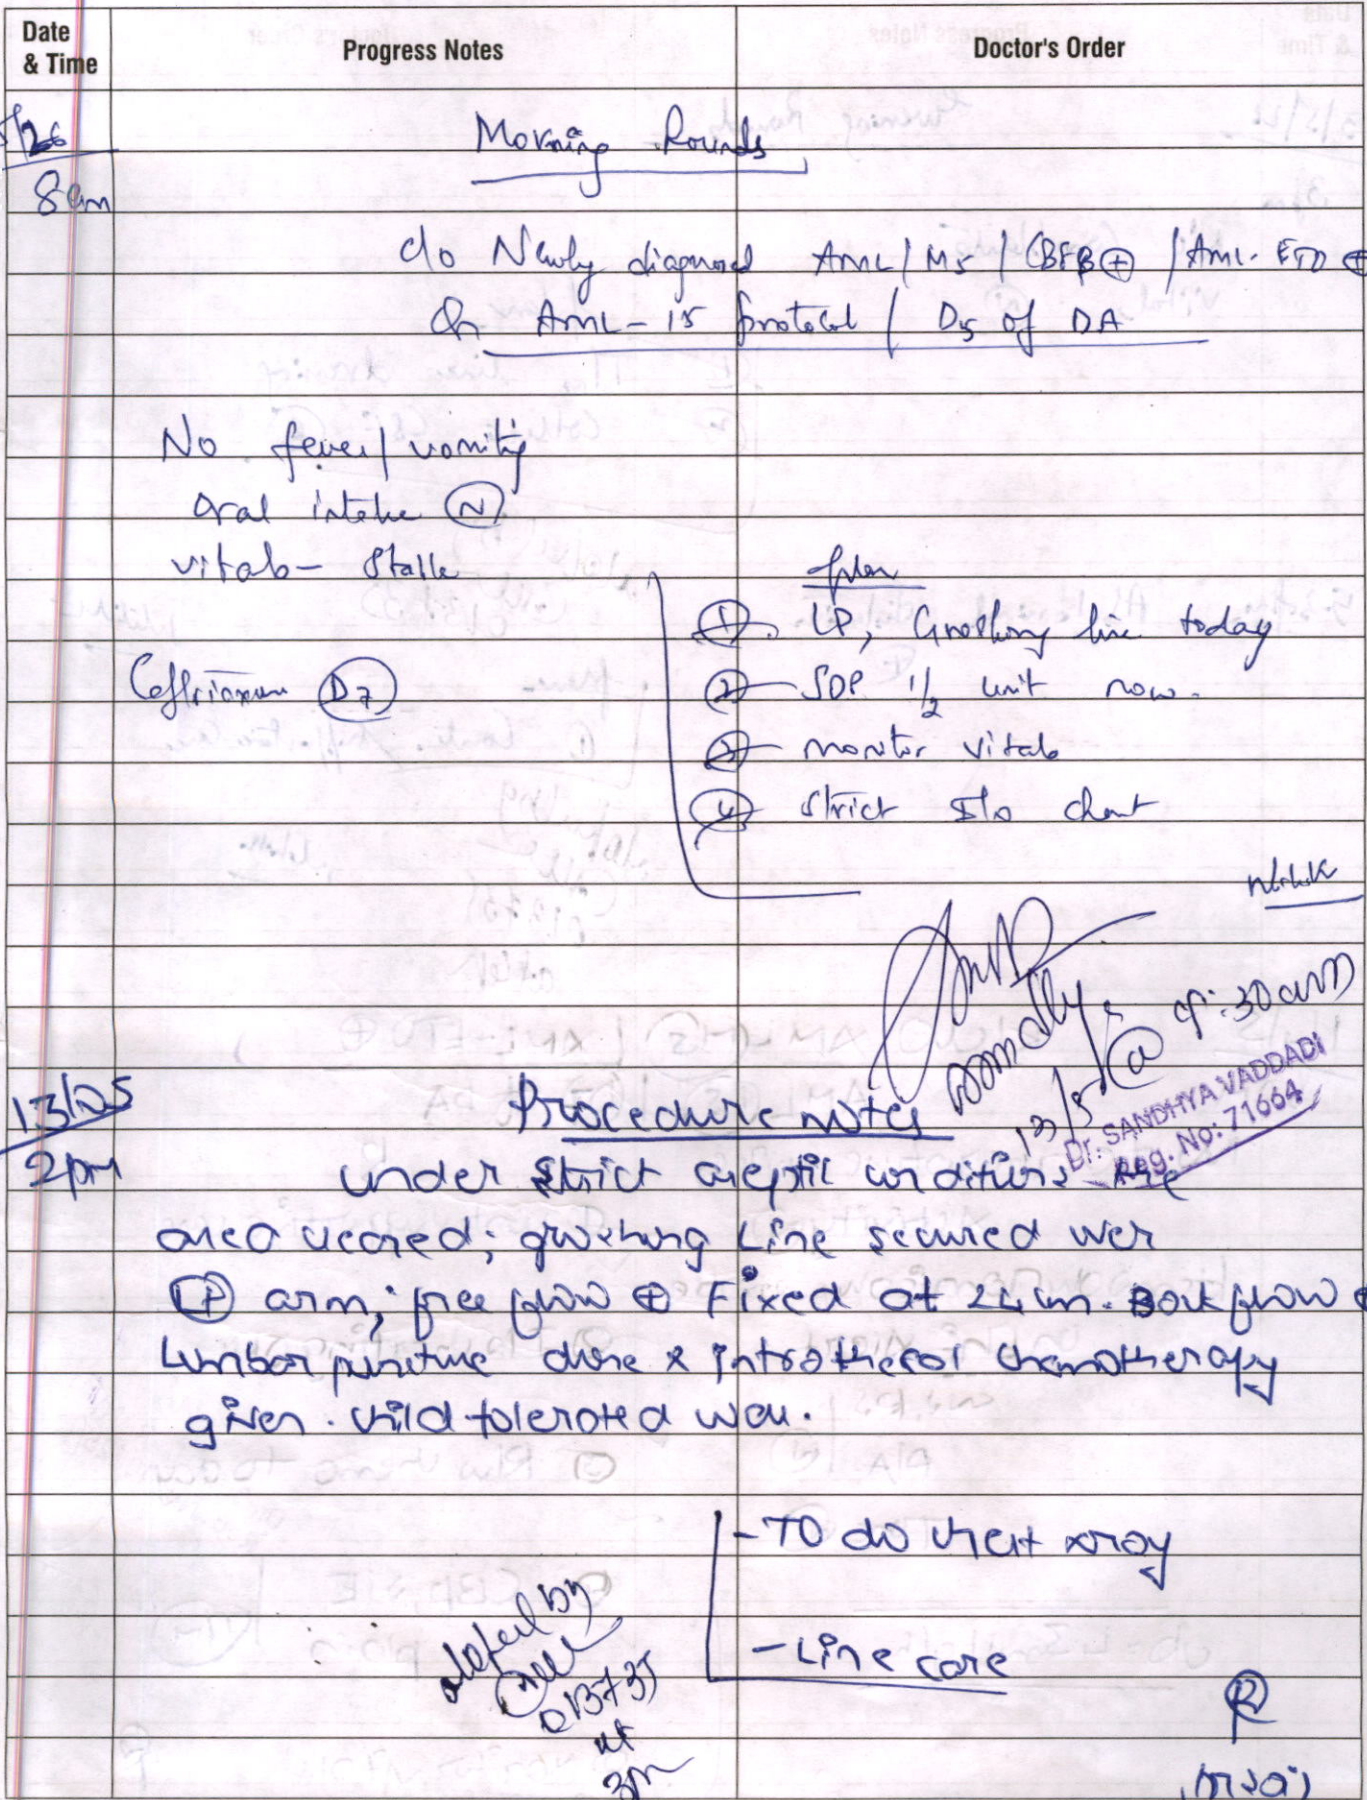 Date
& Time
Progress Notes
Doctor's Order
Morning Rounds
8am
c/o Newly diagnosed AML/M5 / CBFB⊕ / AML-ETO ⊕
On AML-15 protocol / D5 of DA
No fever/vomiting
Oral intake Ⓝ
vitals - stable
Plan
① LP, Groshong line today
Ceftriaxone D7
② SDP 1/2 unit now.
③ monitor vitals
④ strict I/o chart
13/5 @ 9:30am
Dr. SANDHYA VADDADI
Reg. No: 71664
13/05
2pm
Procedure notes
under strict aseptic conditions the
area cleaned; groshong line secured over
arm; free flow ⊕ Fixed at 24 cm. Back flow ⊕
Lumbar puncture done & intrathecal chemotherapy
given. child tolerated well.
- TO do chest xray
- Line care
noted by
013735
at
3pm